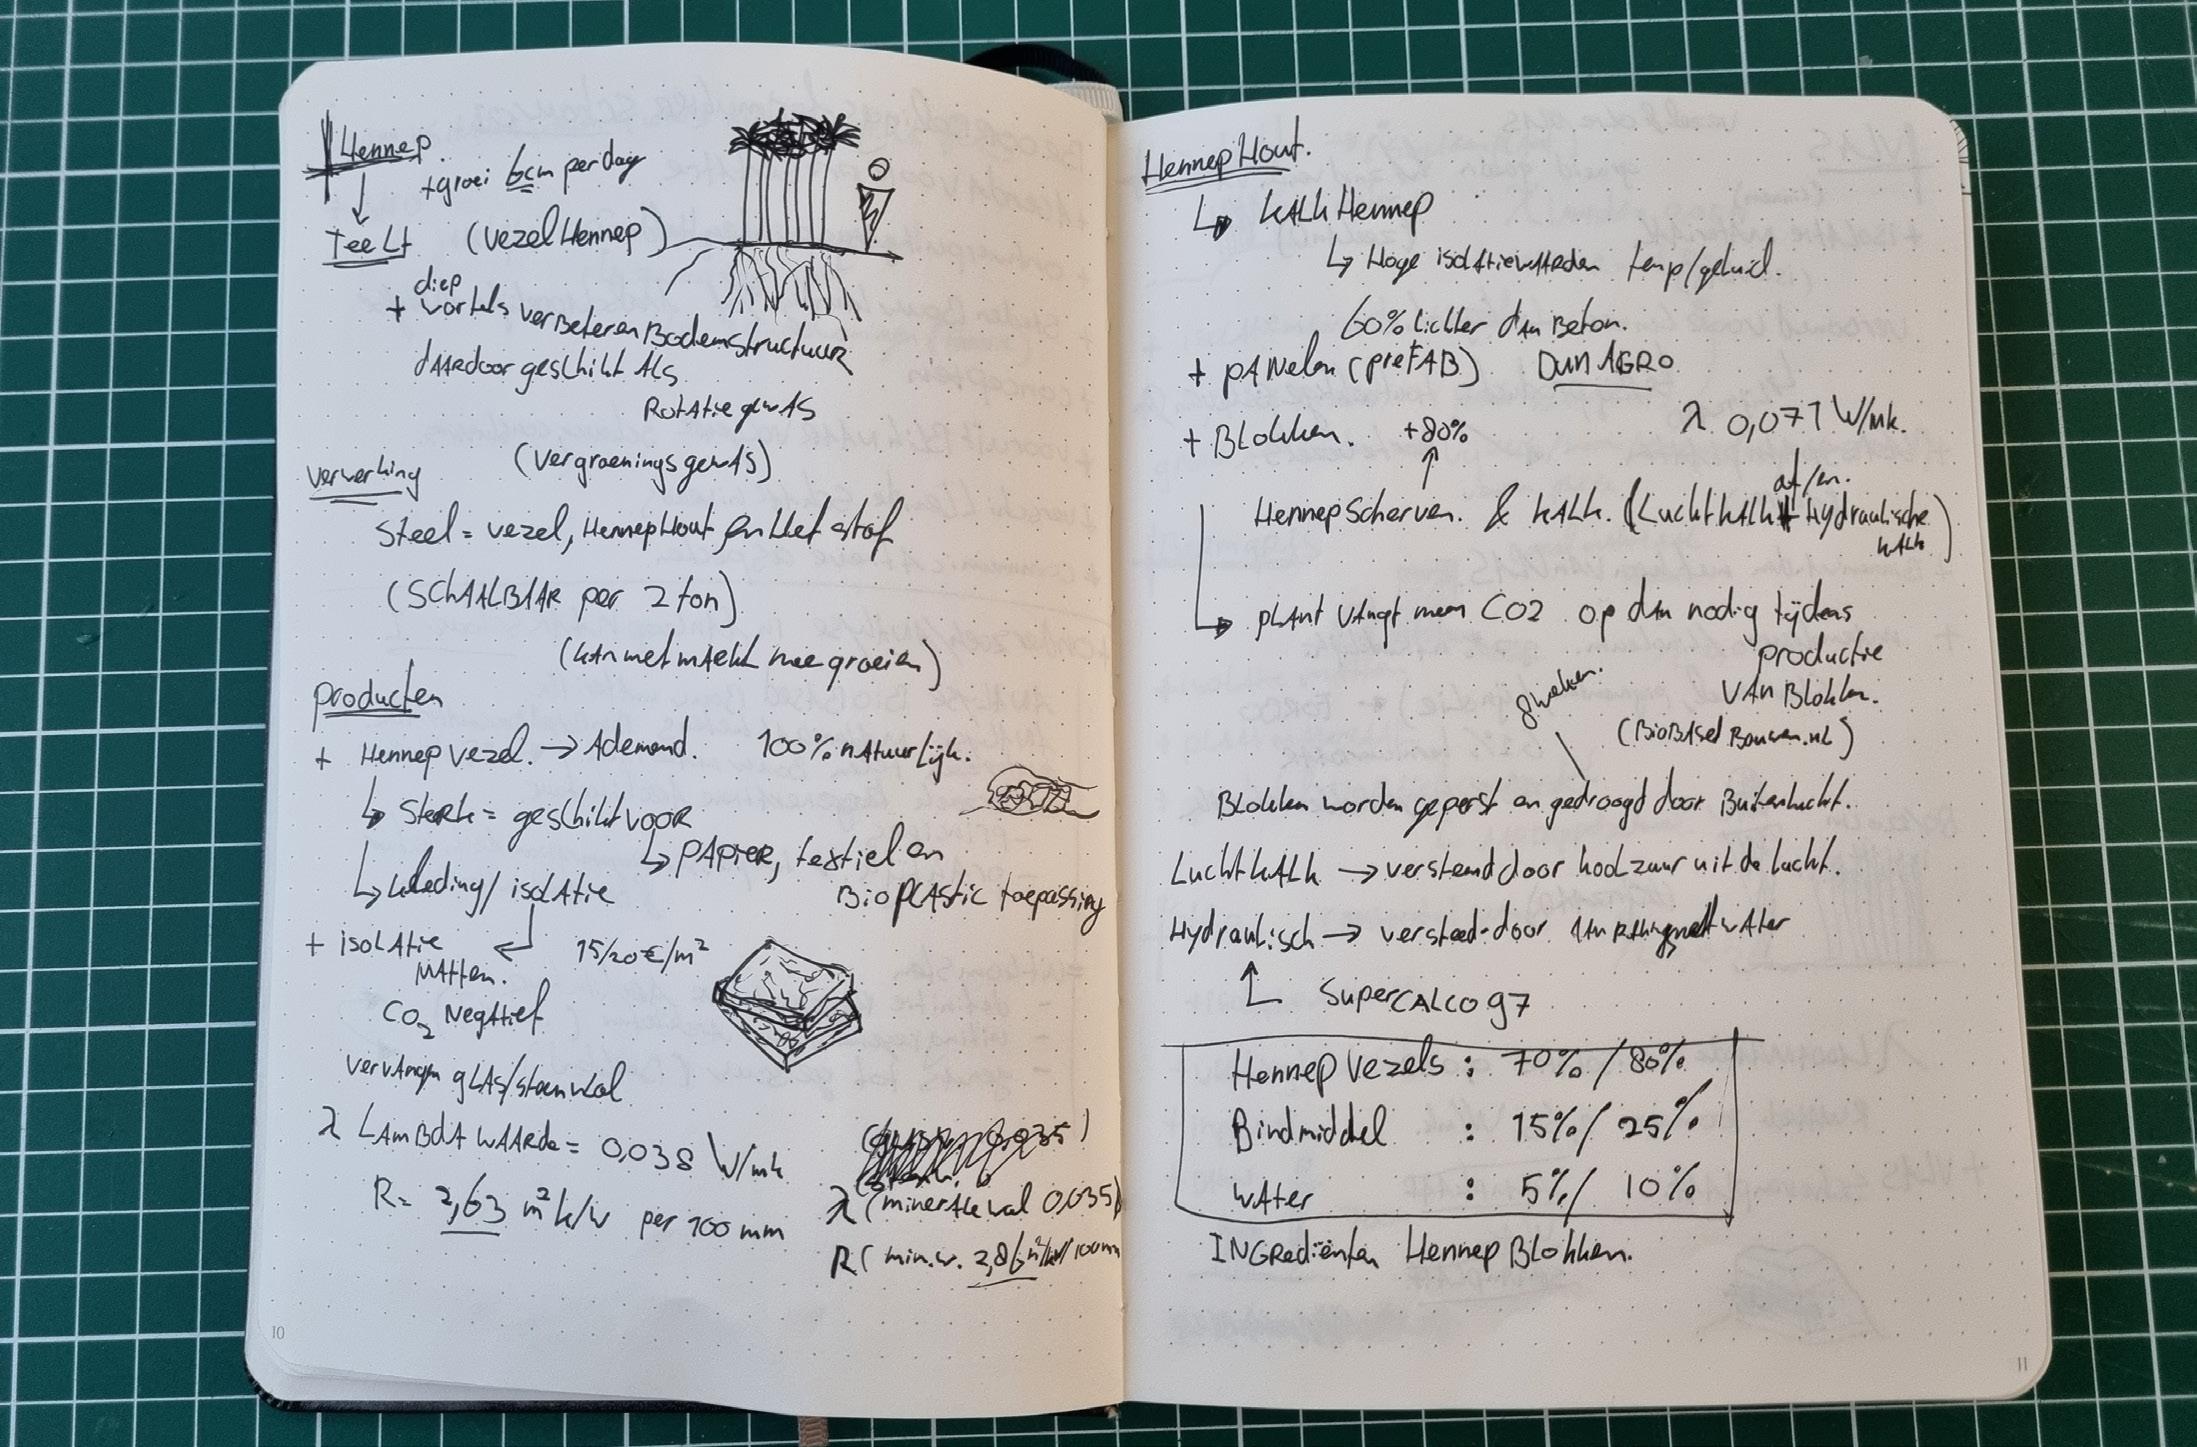 Hennep.
+groei 6cm per dag
Teelt (Vezel Hennep)
diep
+ wortels verbeteren Bodemstructuur
daardoor geschikt als
Rotatie gewas
(vergroenings gewas)
verwerking
Steel = vezel, HennepHout, en Het stof
(SCHAALBAAR per 2 ton)
(kan met markt mee groeien)
producten
+ Hennep vezel. → Ademend. 100% natuurlijk.
↳ Sterk = geschikt voor
↳ papier, textiel en
Bioplastic toepassing
↳ kleding/isolatie
+ isolatie
matten.
15/20 €/m²
CO₂ Negatief
vervangen glas/steenwol
λ LAMBDA WAARDE = 0,038 W/mk
R= 2,63 m²k/w per 100 mm
0,035)
λ (minerale wol 0,035)
R( min.w. 2,86 m²k/w/100mm
10
HennepHout.
↳ kalkHennep
↳ Hoge isolatiewaarden temp/geluid.
60% lichter dan Beton.
+ panelen (preFAB) DUNAGRO
+ Blokken. +80% λ 0,071 W/mk.
of/en.
HennepScherven. & kalk. (Luchtkalk Hydraulische
kalk)
↳ plant vangt meer CO2 op dan nodig tijdens
productie
van Blokken.
(BioBased Bouwen.nl)
8 weken.
Blokken worden geperst en gedroogd door Buitenlucht.
Luchtkalk → versteend door koolzuur uit de lucht.
Hydraulisch → versteed door aanraking met water
SUPERCALCO 97
Hennep vezels : 70% / 80%
Bindmiddel : 15% / 25%
water : 5% / 10%
INGrediënten HennepBlokken.
11